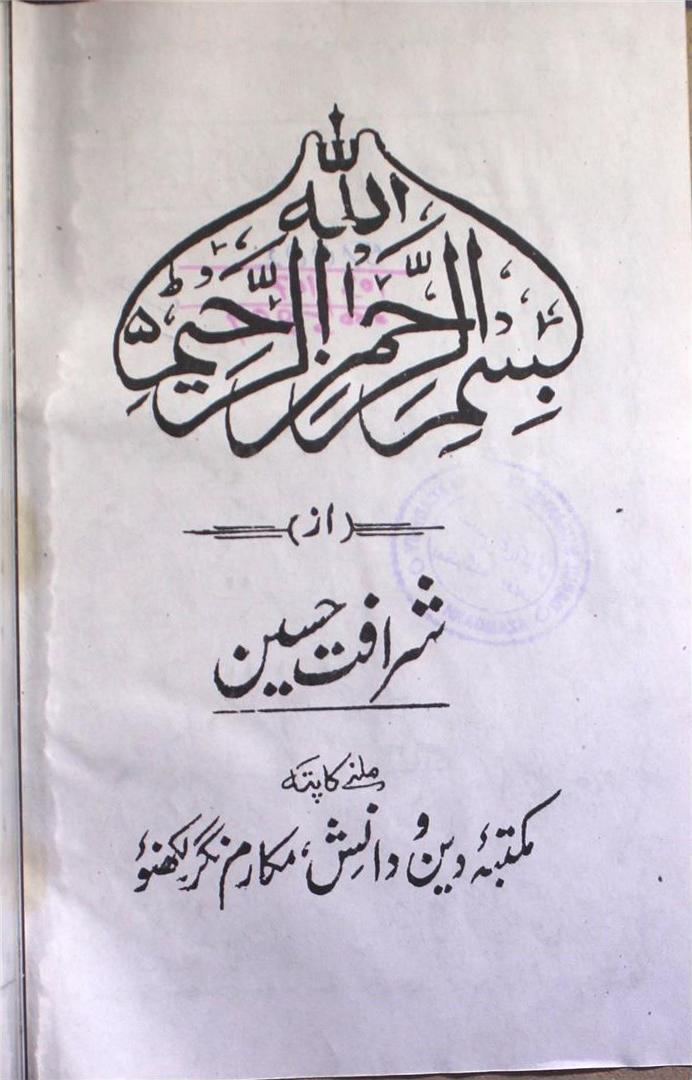 بِسْمِ اللهِ الرَّحْمٰنِ الرَّحِيْمِ
(از)
شرافت حسین
ملنے کا پتہ
مکتبۂ دین و دانش، مکارم نگر لکھنؤ